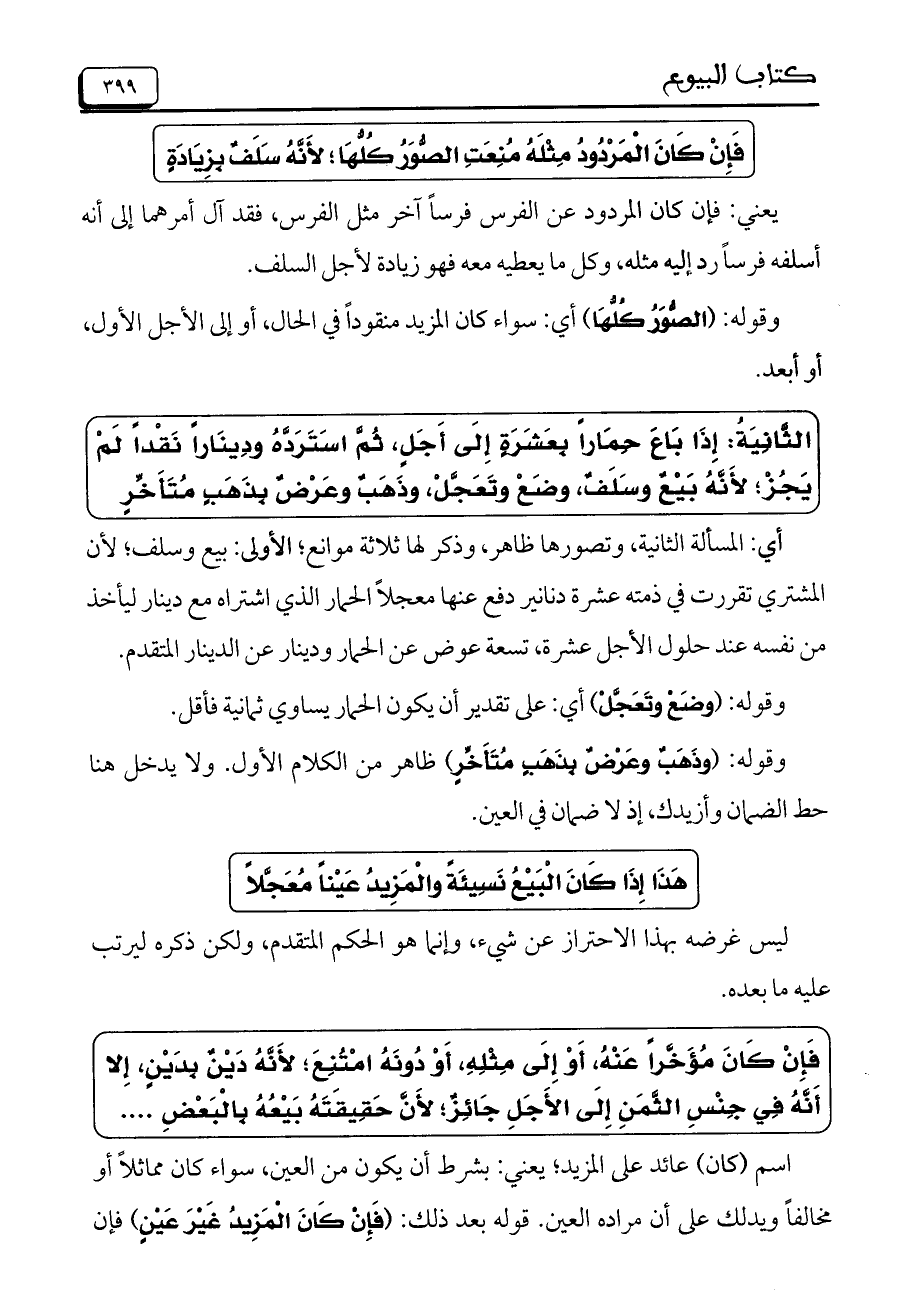 كتاب البيوع
٣٩٩
فَإِنْ كَانَ الْمَرْدُودُ مِثْلَهُ مُنِعَتِ الصُّوَرُ كُلُّهَا؛ لأَنَّهُ سَلَفٌ بِزِيَادَةٍ
يعني: فإن كان المردود عن الفرس فرساً آخر مثل الفرس، فقد آل أمرهما إلى أنه
أسلفه فرساً رد إليه مثله، وكل ما يعطيه معه فهو زيادة لأجل السلف.
وقوله: (الصُّوَرُ كُلُّهَا) أي: سواء كان المزيد منقوداً في الحال، أو إلى الأجل الأول،
أو أبعد.
الثَّانِيَةُ: إِذَا بَاعَ حِمَاراً بِعَشَرَةٍ إِلَى أَجَلٍ، ثُمَّ اسْتَرَدَّهُ ودِينَاراً نَقْداً لَمْ
يَجُزْ؛ لأَنَّهُ بَيْعٌ وسَلَفٌ، وضَعْ وتَعَجَّلْ، وذَهَبٌ وعَرْضٌ بِذَهَبٍ مُتَأَخِّرٍ
أي: المسألة الثانية، وتصورها ظاهر، وذكر لها ثلاثة موانع؛ الأولى: بيع وسلف؛ لأن
المشتري تقررت في ذمته عشرة دنانير دفع عنها معجلاً الحمار الذي اشتراه مع دينار ليأخذ
من نفسه عند حلول الأجل عشرة، تسعة عوض عن الحمار ودينار عن الدينار المتقدم.
وقوله: (وضَعْ وتَعَجَّلْ) أي: على تقدير أن يكون الحمار يساوي ثمانية فأقل.
وقوله: (وذَهَبٌ وعَرْضٌ بِذَهَبٍ مُتَأَخِّرٍ) ظاهر من الكلام الأول. ولا يدخل هنا
حط الضمان وأزيدك، إذ لا ضمان في العين.
هَذَا إِذَا كَانَ الْبَيْعُ نَسِيئَةً والْمَزِيدُ عَيْناً مُعَجَّلاً
ليس غرضه بهذا الاحتراز عن شيء، وإنما هو الحكم المتقدم، ولكن ذكره ليرتب
عليه ما بعده.
فَإِنْ كَانَ مُؤَخَّراً عَنْهُ، أَوْ إِلَى مِثْلِهِ، أَوْ دُونَهُ امْتُنِعَ؛ لأَنَّهُ دَيْنٌ بِدَيْنٍ، إِلا
أَنَّهُ فِي جِنْسِ الثَّمَنِ إِلَى الأَجَلِ جَائِزٌ؛ لأَنَّ حَقِيقَتَهُ بَيْعُهُ بِالْبَعْضِ ....
اسم (كان) عائد على المزيد؛ يعني: بشرط أن يكون من العين، سواء كان مماثلاً أو
مخالفاً ويدلك على أن مراده العين. قوله بعد ذلك: (فَإِنْ كَانَ الْمَزِيدُ غَيْرَ عَيْنٍ) فإن